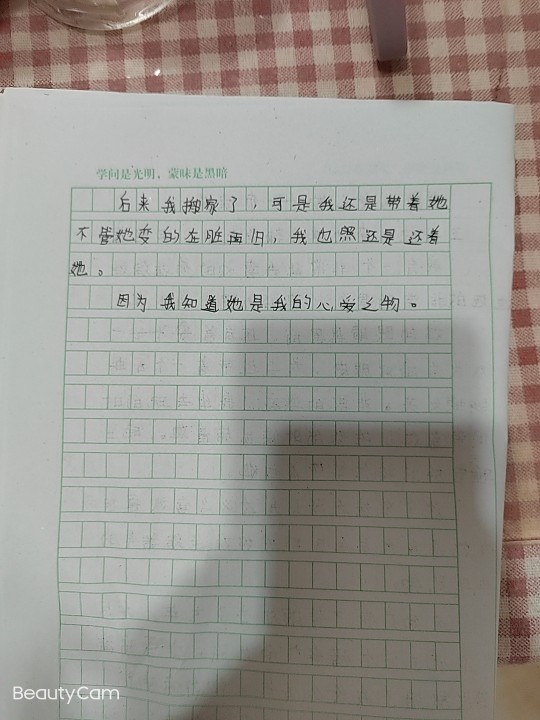 学问是光明，蒙昧是黑暗
后来我搬家了，可是我还是带着她
不管她变的在脏再旧，我也照还是还着
她。
因为我知道她是我的心爱之物。
BeautyCam